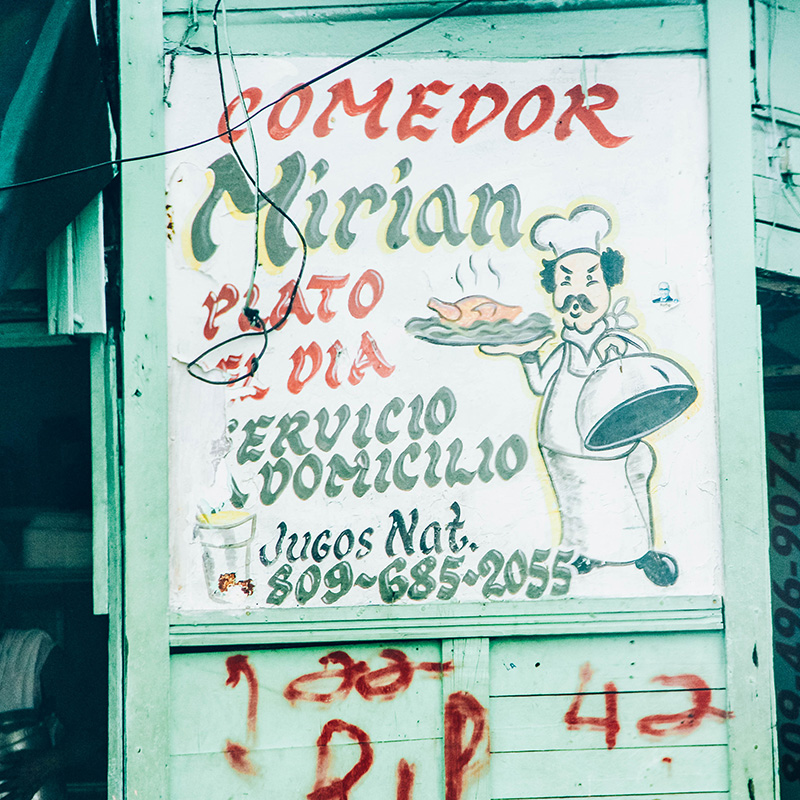 COMEDOR
Mirian
PLATO
EL DIA
SERVICIO
A DOMICILIO
Jugos Nat.
809-685-2055
809-496-9074
42
RIP